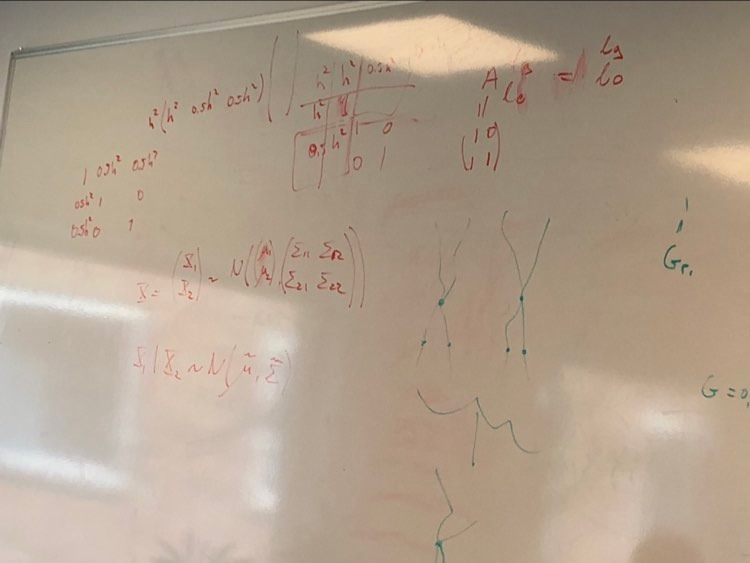 h² (h² 0.5h² 0.5h²)
h² | h² | 0.5h²
h²
h² | 1 0
0 1
A = lg
lo
||
(1 0
1 1)
1 0.5h² 0.5h²
0.5h² 1 0
0.5h² 0 1
X = (X₁ X₂) ~ N((μ₁ μ₂), (Σ₁₁ Σ₁₂ Σ₂₁ Σ₂₂))
X₁ | X₂ ~ N(μ̃, Σ̃)
G = 0